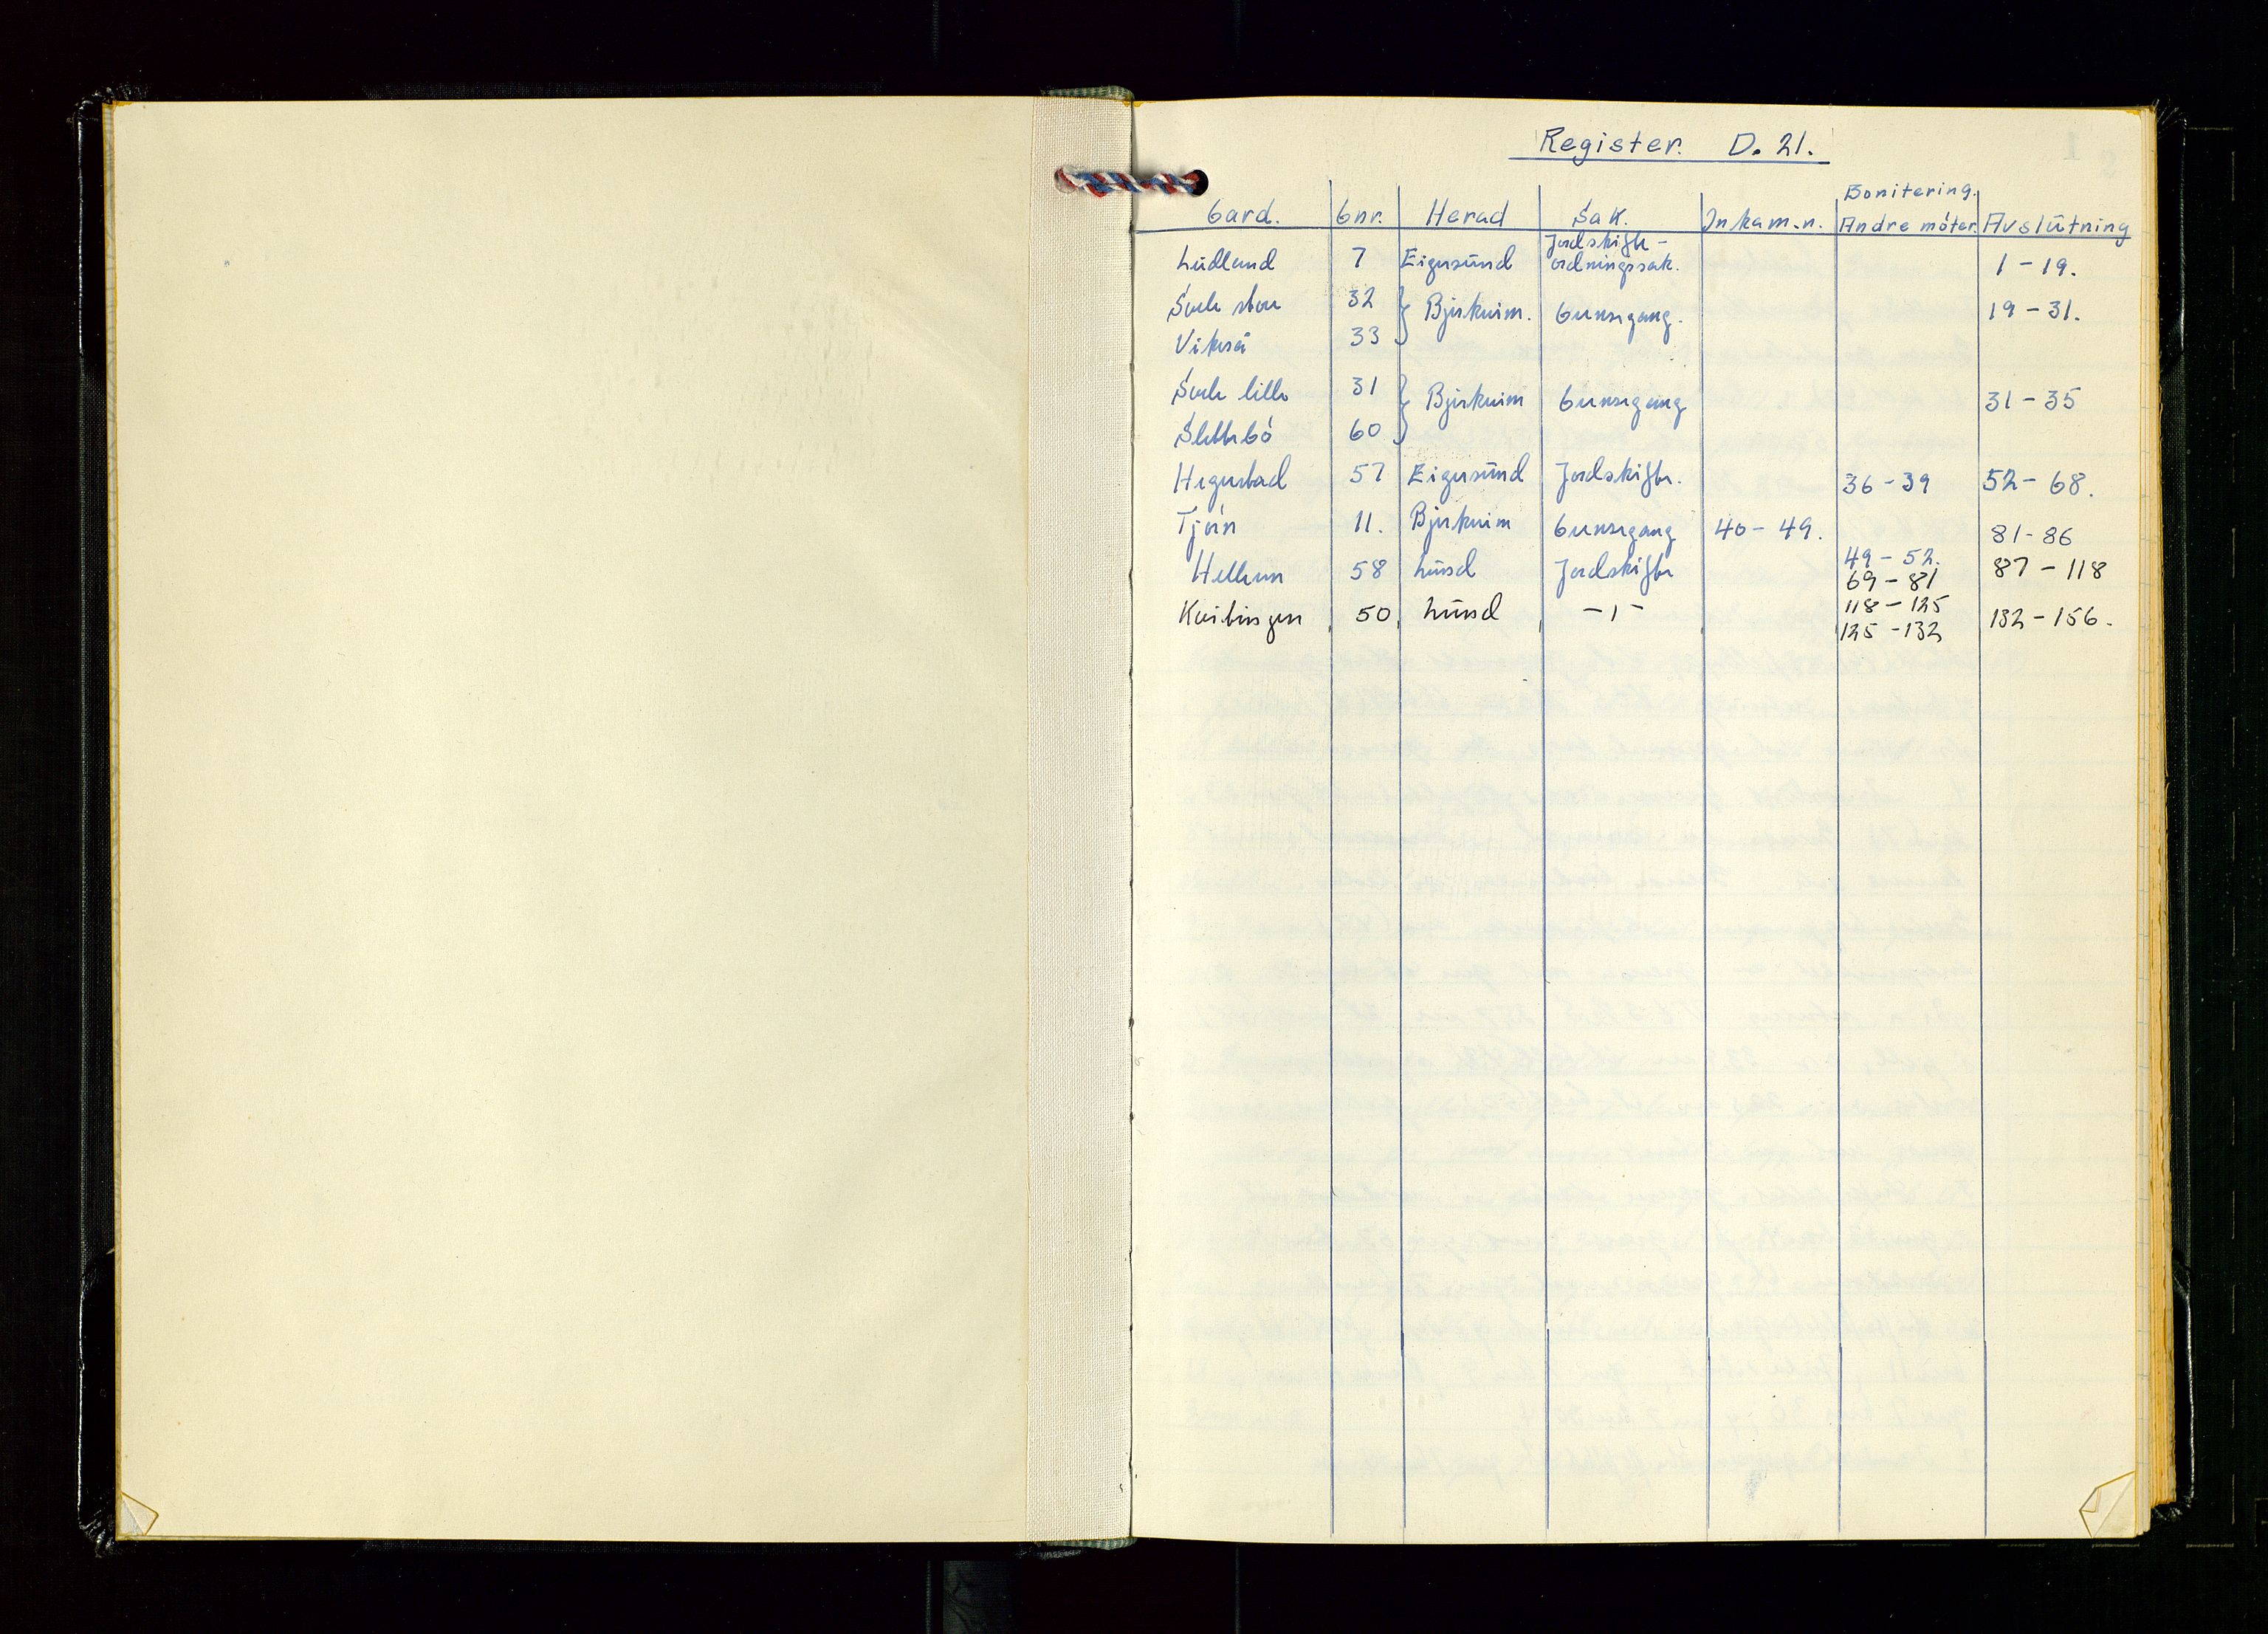 Register. D. 21.
Gard. Gnr. Herad Sak. Innkam.n. Bonitering. Andre møter. Avslutning
Ludland 7 Eigersund Jordskifte- ordningssak. 1-19.
Søele store 32 } Bjerkreim. Grensegang. 19-31.
Vikeså 33
Søele lille 31 } Bjerkreim Grensegang 31-35
Slettebø 60
Hegrestad 57 Eigersund Jordskifte. 36-39 52-68.
Tjørn 11. Bjerkreim Grensegang 40-49. 81-86
Helleren 58 Lund Jordskifte 49-52. 69-81 87-118
50 Lund -"- 118-125 125-132 132-156.